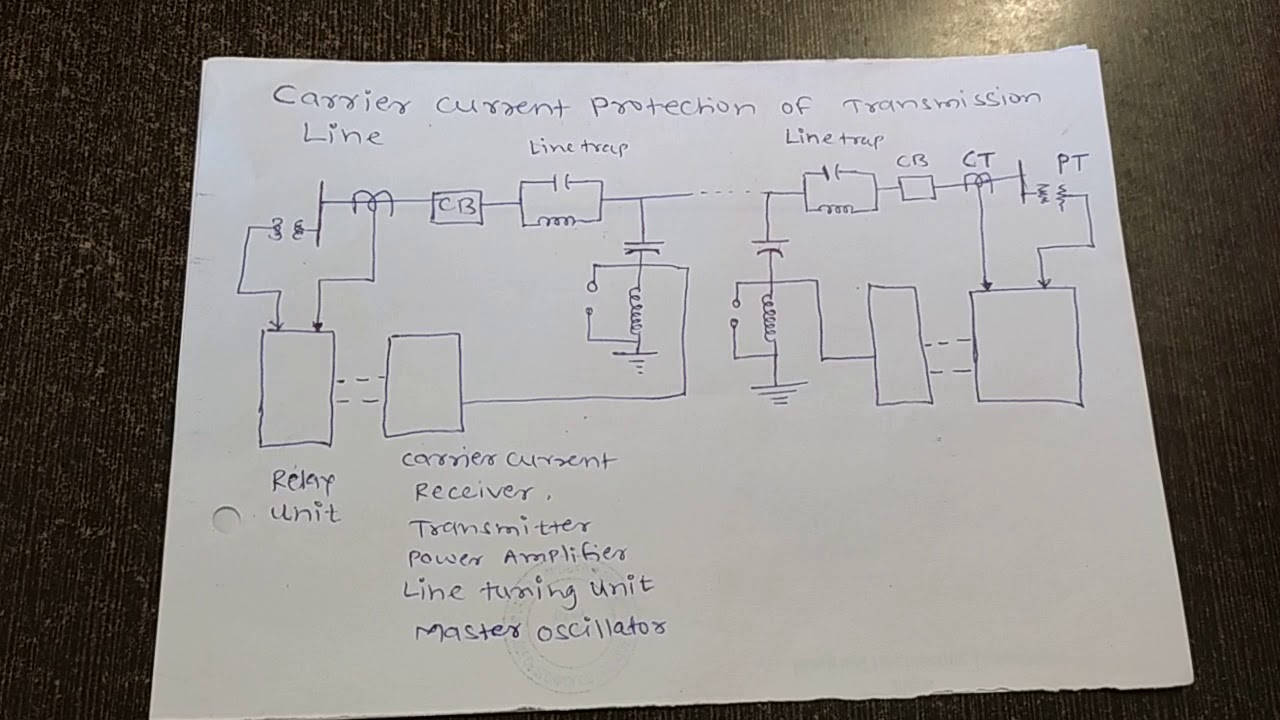 Carrier current protection of Transmission
Line
Line trap
Line trap
CB
CT
PT
CB
Relay
unit
carrier current
Receiver,
Transmitter
Power Amplifier
Line tuning unit
Master oscillator